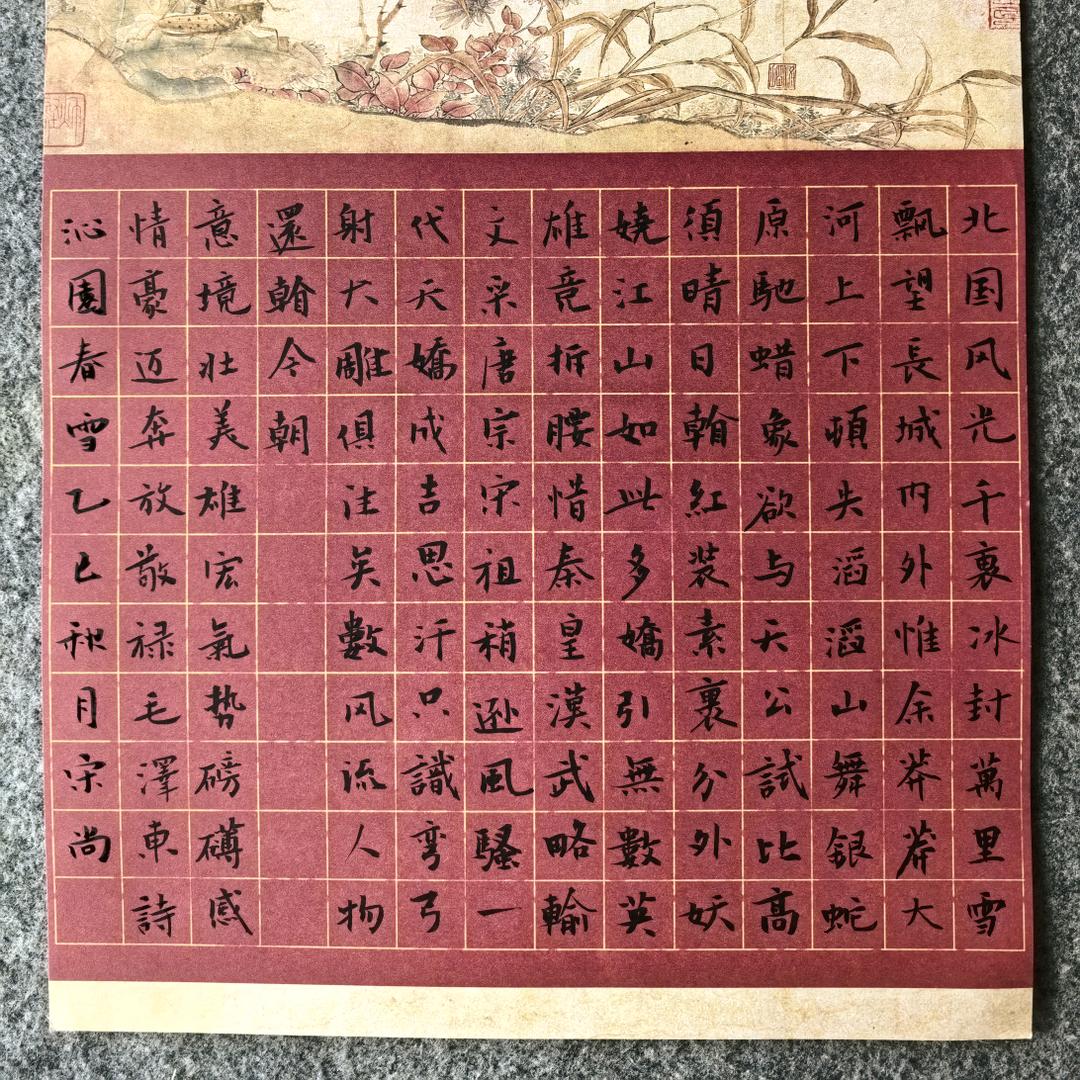 北国风光千裏冰封萬里雪
飄望長城内外惟余莽莽大
河上下頓失滔滔山舞銀蛇
原馳蜡象欲与天公試比高
須晴日翰紅装素裹分外妖
娆江山如此多嬌引無數英
雄竟折腰惜秦皇漢武略輸
文采唐宗宋祖稍逊風騷一
代天嬌成吉思汗只識弯弓
射大雕俱往矣數风流人物
還翰今朝
意境壮美雄宏氣势磅礴感
情豪迈奔放敬禄毛澤東詩
沁園春雪乙巳秋月宋尚